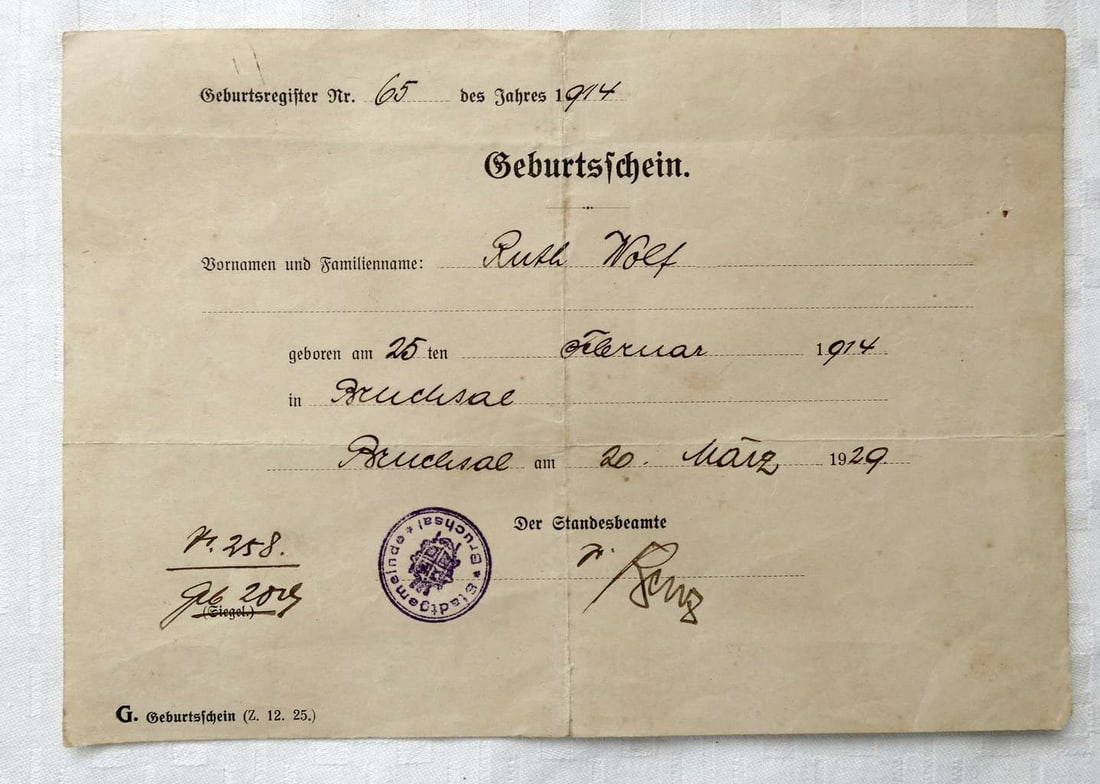 Geburtsregister Nr. 65 des Jahres 1914
Geburtsschein.
Vornamen und Familienname: Ruth Wolf
geboren am 25 ten Februar 1914
in Bruchsal
Bruchsal am 20. März 1929
Der Standesbeamte
258.
Geb
(Siegel.)
Stadtgemeinde * Bruchsal *
G. Geburtsschein (Z. 12. 25.)